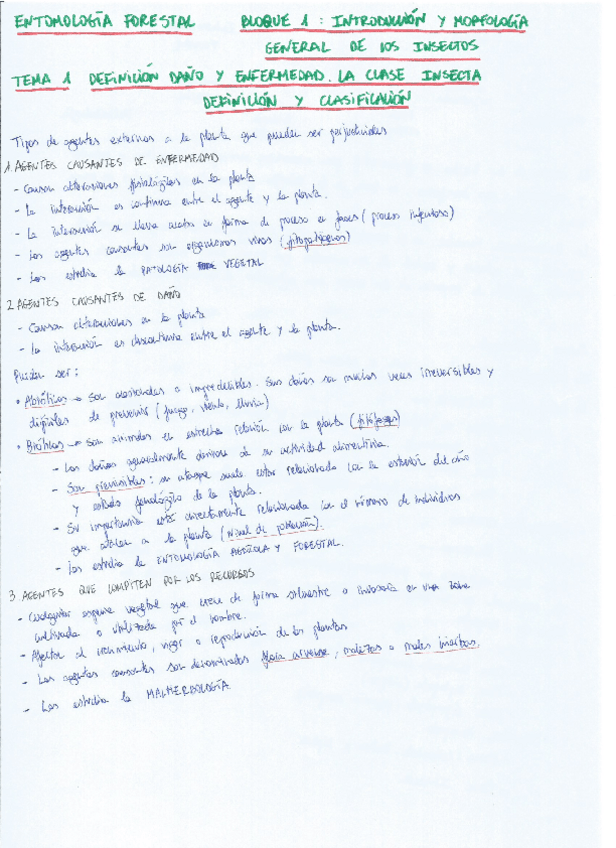 ENTOMOLOGÍA FORESTAL BLOQUE 1 : INTRODUCCIÓN Y MORFOLOGÍA
GENERAL DE LOS INSECTOS
TEMA 1 DEFINICIÓN DAÑO Y ENFERMEDAD. LA CLASE INSECTA
DEFINICIÓN Y CLASIFICACIÓN
Tipos de agentes externos a la planta que pueden ser perjudiciales
1. AGENTES CAUSANTES DE ENFERMEDAD
- Causan alteraciones fisiológicas en la planta
- La interacción es continua entre el agente y la planta.
- La interacción se lleva acabo en forma de proceso en fases (proceso infeccioso)
- Los agentes causantes son organismos vivos (fitopatógenos)
- Los estudia la PATOLOGÍA VEGETAL
2 AGENTES CAUSANTES DE DAÑO
- Causan alteraciones en la planta
- La interacción es discontinua entre el agente y la planta.
Pueden ser:
• Abióticos → Son ocasionales o impredecibles. Sus daños son muchas veces irreversibles y
difíciles de prevenir (fuego, viento, lluvia)
• Bióticos → Son animales en estrecha relación con la planta (fitófagos)
- Los daños generalmente derivan de su actividad alimenticia.
- Son previsibles: su ataque suele estar relacionado con la estación del año
y estado fenológico de la planta.
- Su importancia está directamente relacionada con el número de individuos
que atacan a la planta (nivel de población).
- Los estudia la ENTOMOLOGÍA AGRÍCOLA Y FORESTAL.
3 AGENTES QUE COMPITEN POR LOS RECURSOS
- Cualquier especie vegetal que crece de forma silvestre o indeseada en una zona
cultivada o utilizada por el hombre.
- Afectan al crecimiento, vigor o reproducción de las plantas
- Los agentes causantes son denominados flora arvense, malezas o malas hierbas.
- Los estudia la MALHERBOLOGÍA